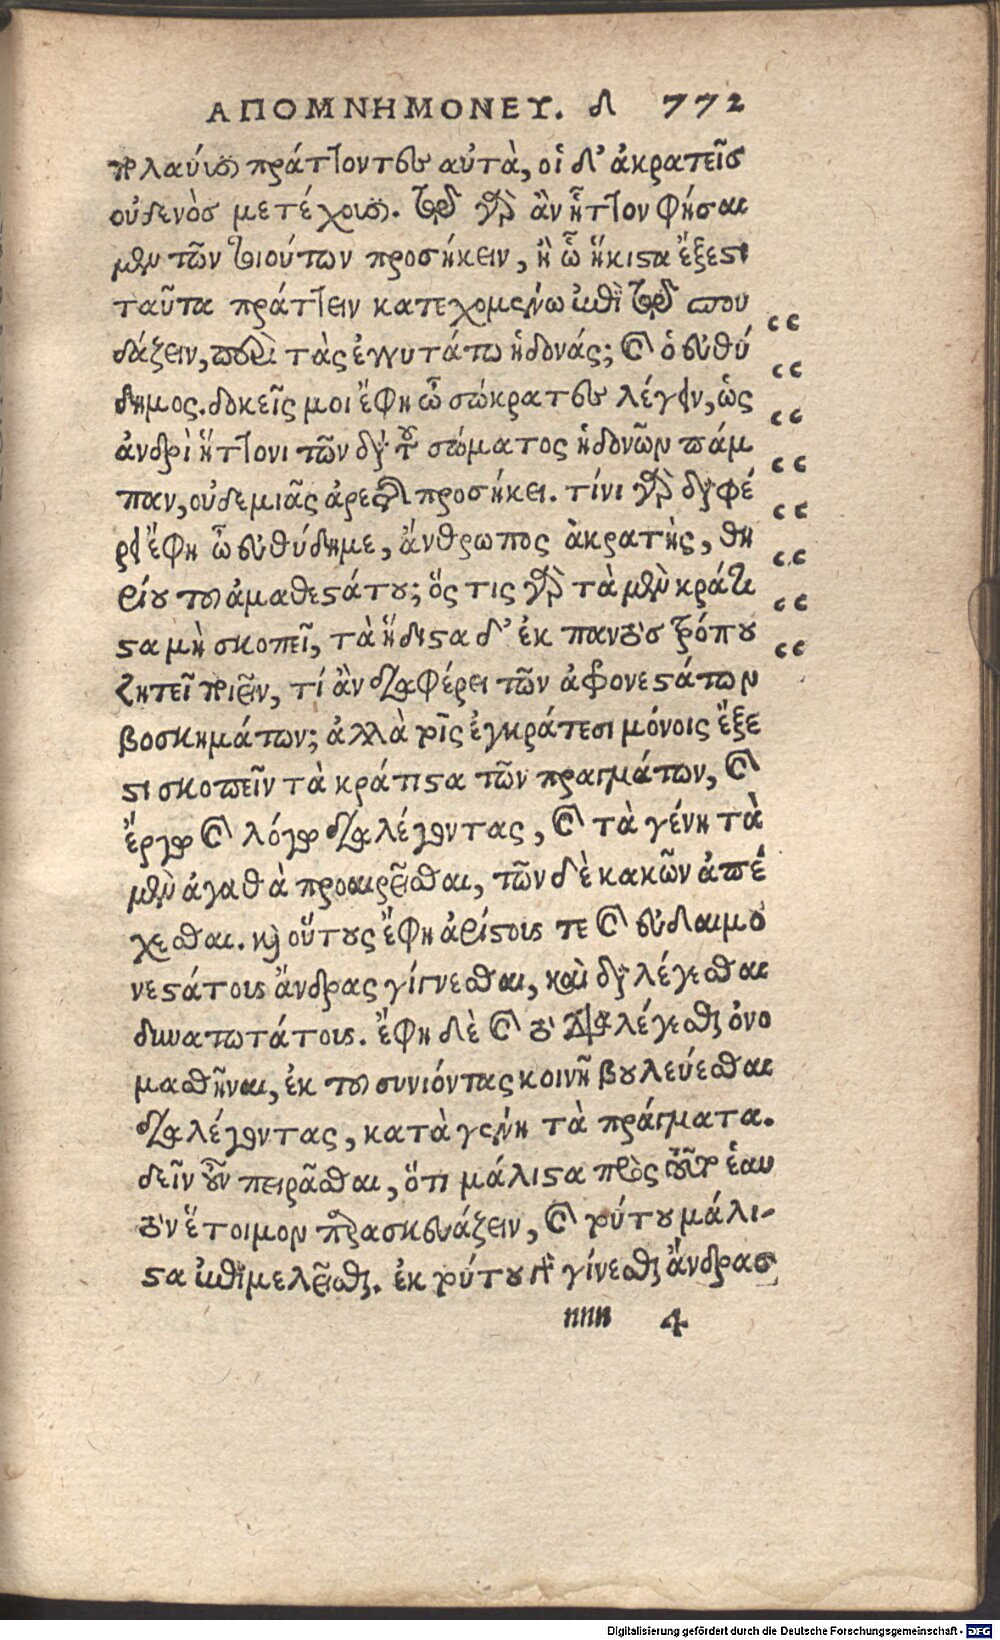 ΑΠΟΜΝΗΜΟΝΕΥ. δ 772
πολαύουσι πράττοντες αὐτὰ, οἱ δ' ἀκρατεῖς
οὐδενὸς μετέχουσι. τοῦ γὰρ ἂν ἧττον φήσαι
μεν τῶν τοιούτων προσήκειν, ἢ ᾧ ἥκιστα ἔξεστι
ταῦτα πράττειν κατεχομένῳ ἐπὶ τοῦ σπου
δάζειν, περὶ τὰς ἐγγυτάτω ἡδονάς; καὶ ὁ εὐθύ
δημος. δοκεῖς μοι ἔφη ὦ σώκρατες λέγειν, ὡς
ἀνδρὶ ἥττονι τῶν διὰ τοῦ σώματος ἡδονῶν πάμ
παν, οὐδεμιᾶς ἀρετῆς προσήκει. τίνι γὰρ διαφέ
ρει ἔφη ὦ εὐθύδημε, ἄνθρωπος ἀκρατὴς, θη
ρίου τοῦ ἀμαθεστάτου; ὅς τις γὰρ τὰ μὲν κράτι
στα μὴ σκοπεῖ, τὰ ἥδιστα δ' ἐκ παντὸς τρόπου
ζητεῖ ποιεῖν, τί ἂν διαφέρει τῶν ἀφρονεστάτων
βοσκημάτων; ἀλλὰ τοῖς ἐγκράτεσι μόνοις ἔξε
στι σκοπεῖν τὰ κράτιστα τῶν πραγμάτων, καὶ
ἔργῳ καὶ λόγῳ διαλέγοντας, καὶ τὰ γένη τὰ
μὲν ἀγαθὰ προαιρεῖσθαι, τῶν δὲ κακῶν ἀπέ
χεσθαι. καὶ οὕτως ἔφη ἀρίστους τε καὶ εὐδαιμο
νεστάτους ἄνδρας γίγνεσθαι, καὶ διαλέγεσθαι
δυνατωτάτους. ἔφη δὲ καὶ τὸ διαλέγεσθαι ὀνο
μασθῆναι, ἐκ τοῦ συνιόντας κοινῇ βουλεύεσθαι
διαλέγοντας, κατὰ γένη τὰ πράγματα.
δεῖν οὖν πειρᾶσθαι, ὅτι μάλιστα πρὸς τοῦτο ἑαυ
τὸν ἕτοιμον παρασκευάζειν, καὶ τούτου μάλι-
στα ἐπιμελεῖσθαι. ἐκ τούτου γὰρ γίνεσθαι ἄνδρας
nnn 4